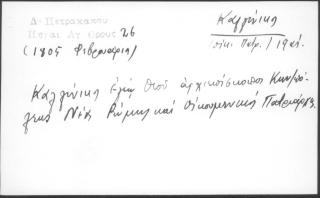 Δ. Πετρακάκου
Πηγαί Αγ. Όρους 26
(1805 Φεβρουαρίω)
Καλλίνικος
Οίκ. Πατρ. /
Καλλίνικος Ελέω Θεού αρχιεπίσκοπος Κων/πό-
λεως Νέας Ρώμης και Οικουμενικός Πατριάρχης